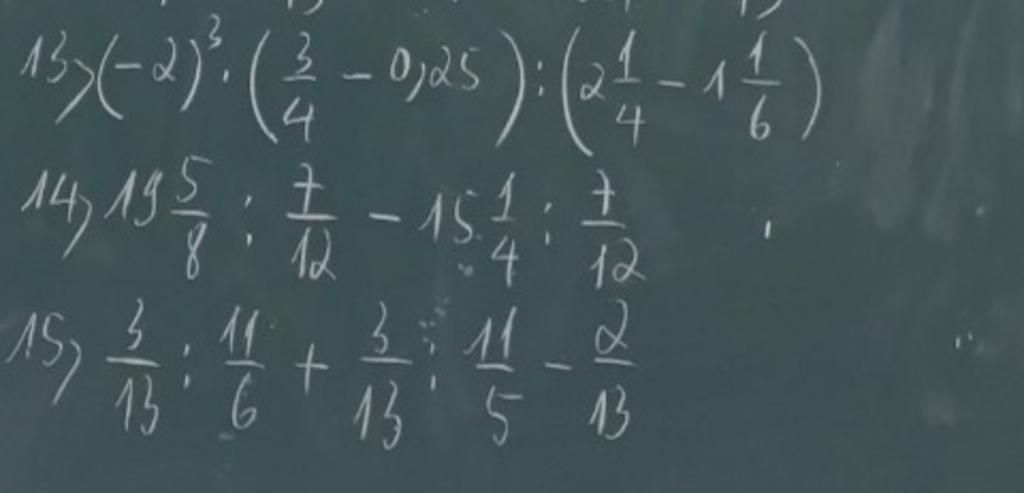 13, (-2)³ · (3/4 - 0,25) : (2 1/4 - 1 1/6)
14, 19 5/8 : 7/12 - 15 1/4 : 7/12
15, 3/13 : 11/6 + 3/13 : 11/5 - 2/13